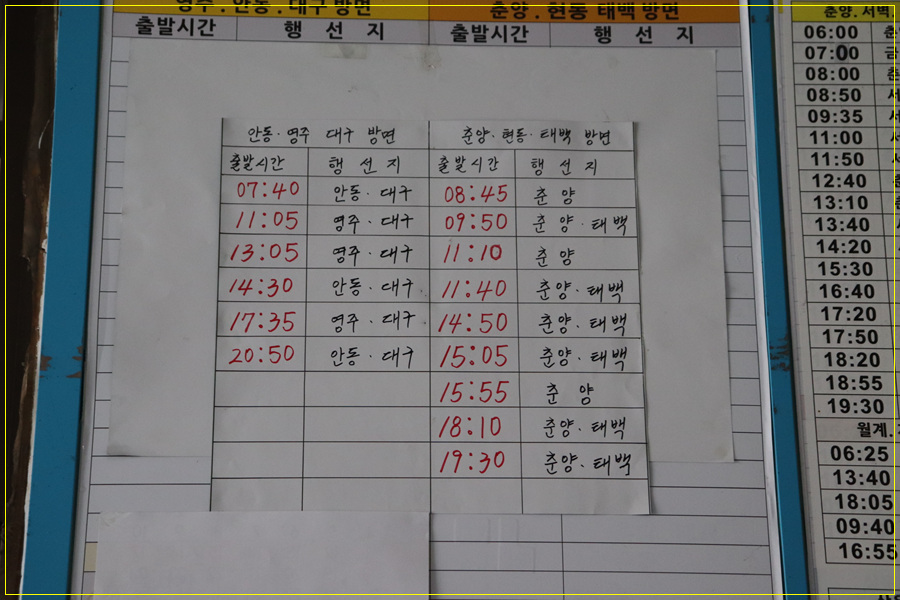 영주 . 안동 . 대구 방면 춘양 . 현동 태백 방면
출발시간 행 선 지 출발시간 행 선 지
안동 · 영주 대구 방면 춘양 · 현동 · 태백 방면
출발시간 행 선 지 출발시간 행 선 지
07:40 안동 · 대구 08:45 춘 양
11:05 영주 · 대구 09:50 춘 양 · 태백
13:05 영주 · 대구 11:10 춘 양
14:30 안동 · 대구 11:40 춘양 · 태백
17:35 영주 · 대구 14:50 춘양 · 태백
20:50 안동 · 대구 15:05 춘양 · 태백
15:55 춘 양
18:10 춘양 · 태백
19:30 춘양 · 태백
춘양. 서벽
06:00
07:00
08:00
08:50
09:35
11:00
11:50
12:40
13:10
13:40
14:20
15:30
16:40
17:20
17:50
18:20
18:55
19:30
월계.
06:25
13:40
18:05
09:40
16:55